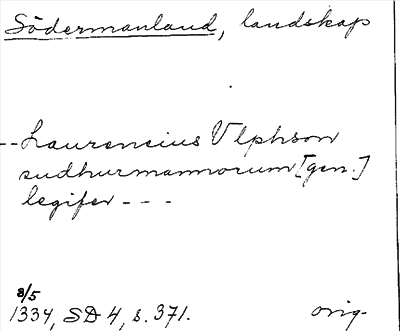 Södermanland, landskap
--Laurencius Vlphson
sudhurmannorum [gen.]
legifer ---
8/5
1334, SD 4, s. 371. orig.